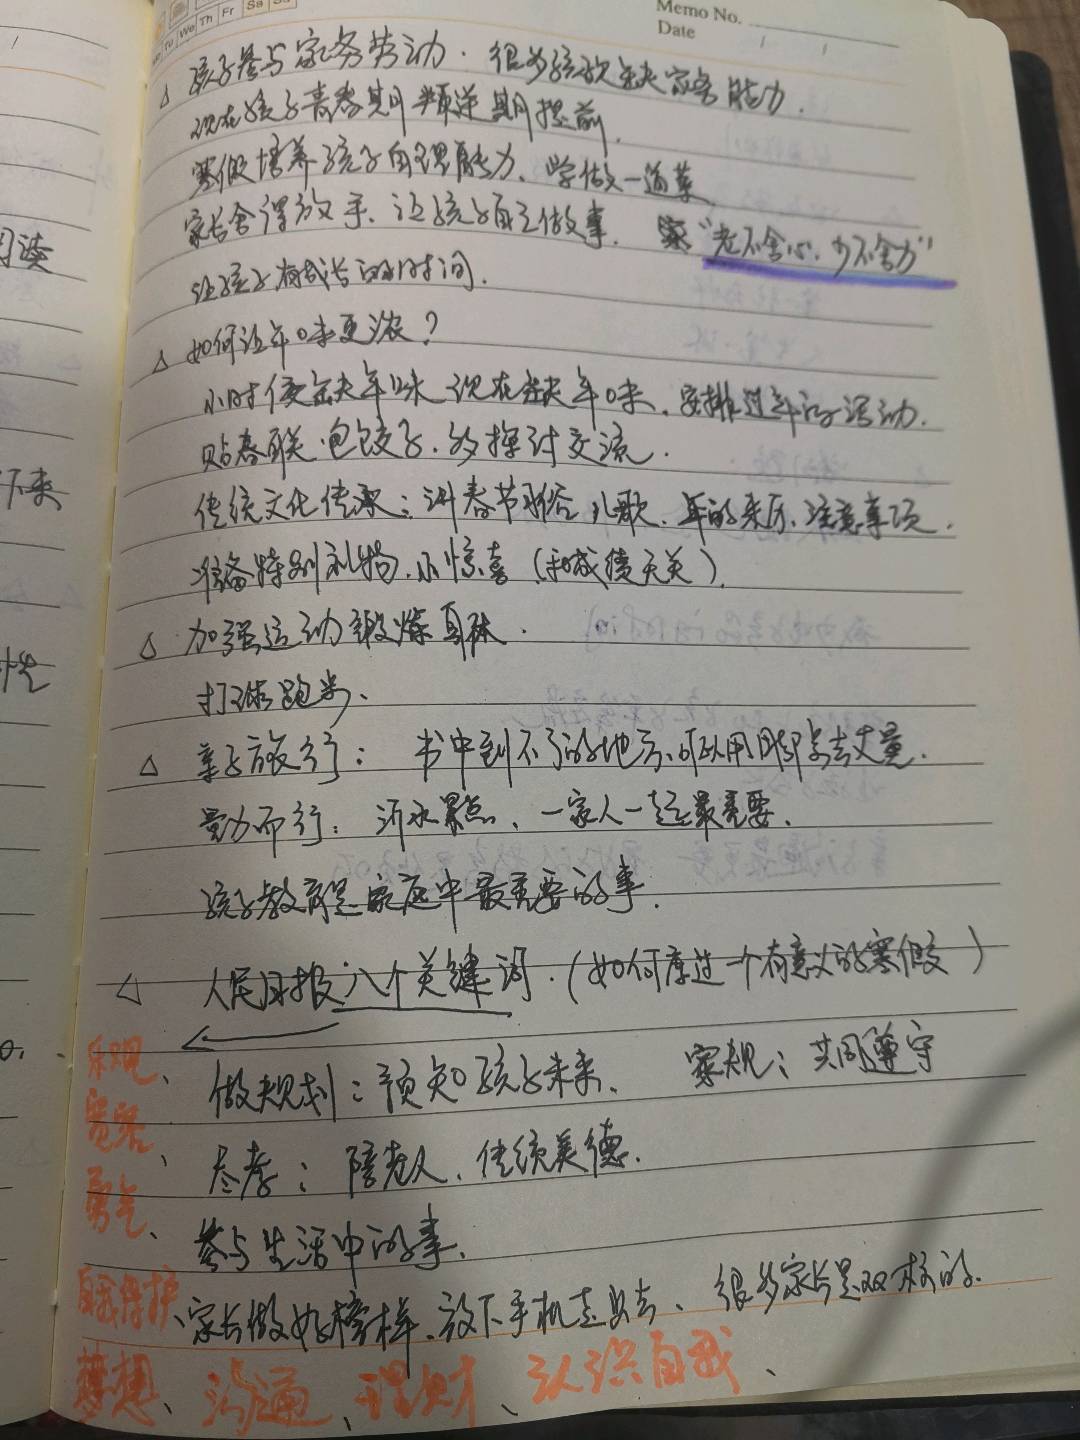 Memo No.
Date
Tu We Th Fr Sa Su
△ 孩子参与家务劳动.很多孩欠缺家务能力.
现在孩子青春期叛逆期提前.
寒假培养孩子自理能力、学做一道菜
家长舍得放手、让孩子自主做事. "老不舍心、少不舍力"
让孩子有成长的时间.
△ 如何让年味更浓?
小时候缺年味 现在缺年味、安排过年的活动.
贴春联、包饺子、多探讨交流.
传统文化传承:讲春节习俗、儿歌、年的来历、注意事项.
准备特别礼物、小惊喜(和成绩无关).
△ 加强运动锻炼身体.
打球跑步、
△ 亲子旅行: 书中到不了的地方、可以用脚步去丈量.
量力而行:沂水景点、一家人一起最重要.
孩子教育是家庭中最重要的事.
△ 人民日报八个关键词.(如何度过一个有意义的寒假)
乐观、
做规划:预知孩子未来、 家规:共同遵守
宽容、
尽孝:陪老人、传统美德.
勇气、
参与生活中的事.
自我保护、
家长做好榜样、放下手机走出去、很多家长是双标的.
梦想、沟通、理财、认识自我、
阅读
下来
性